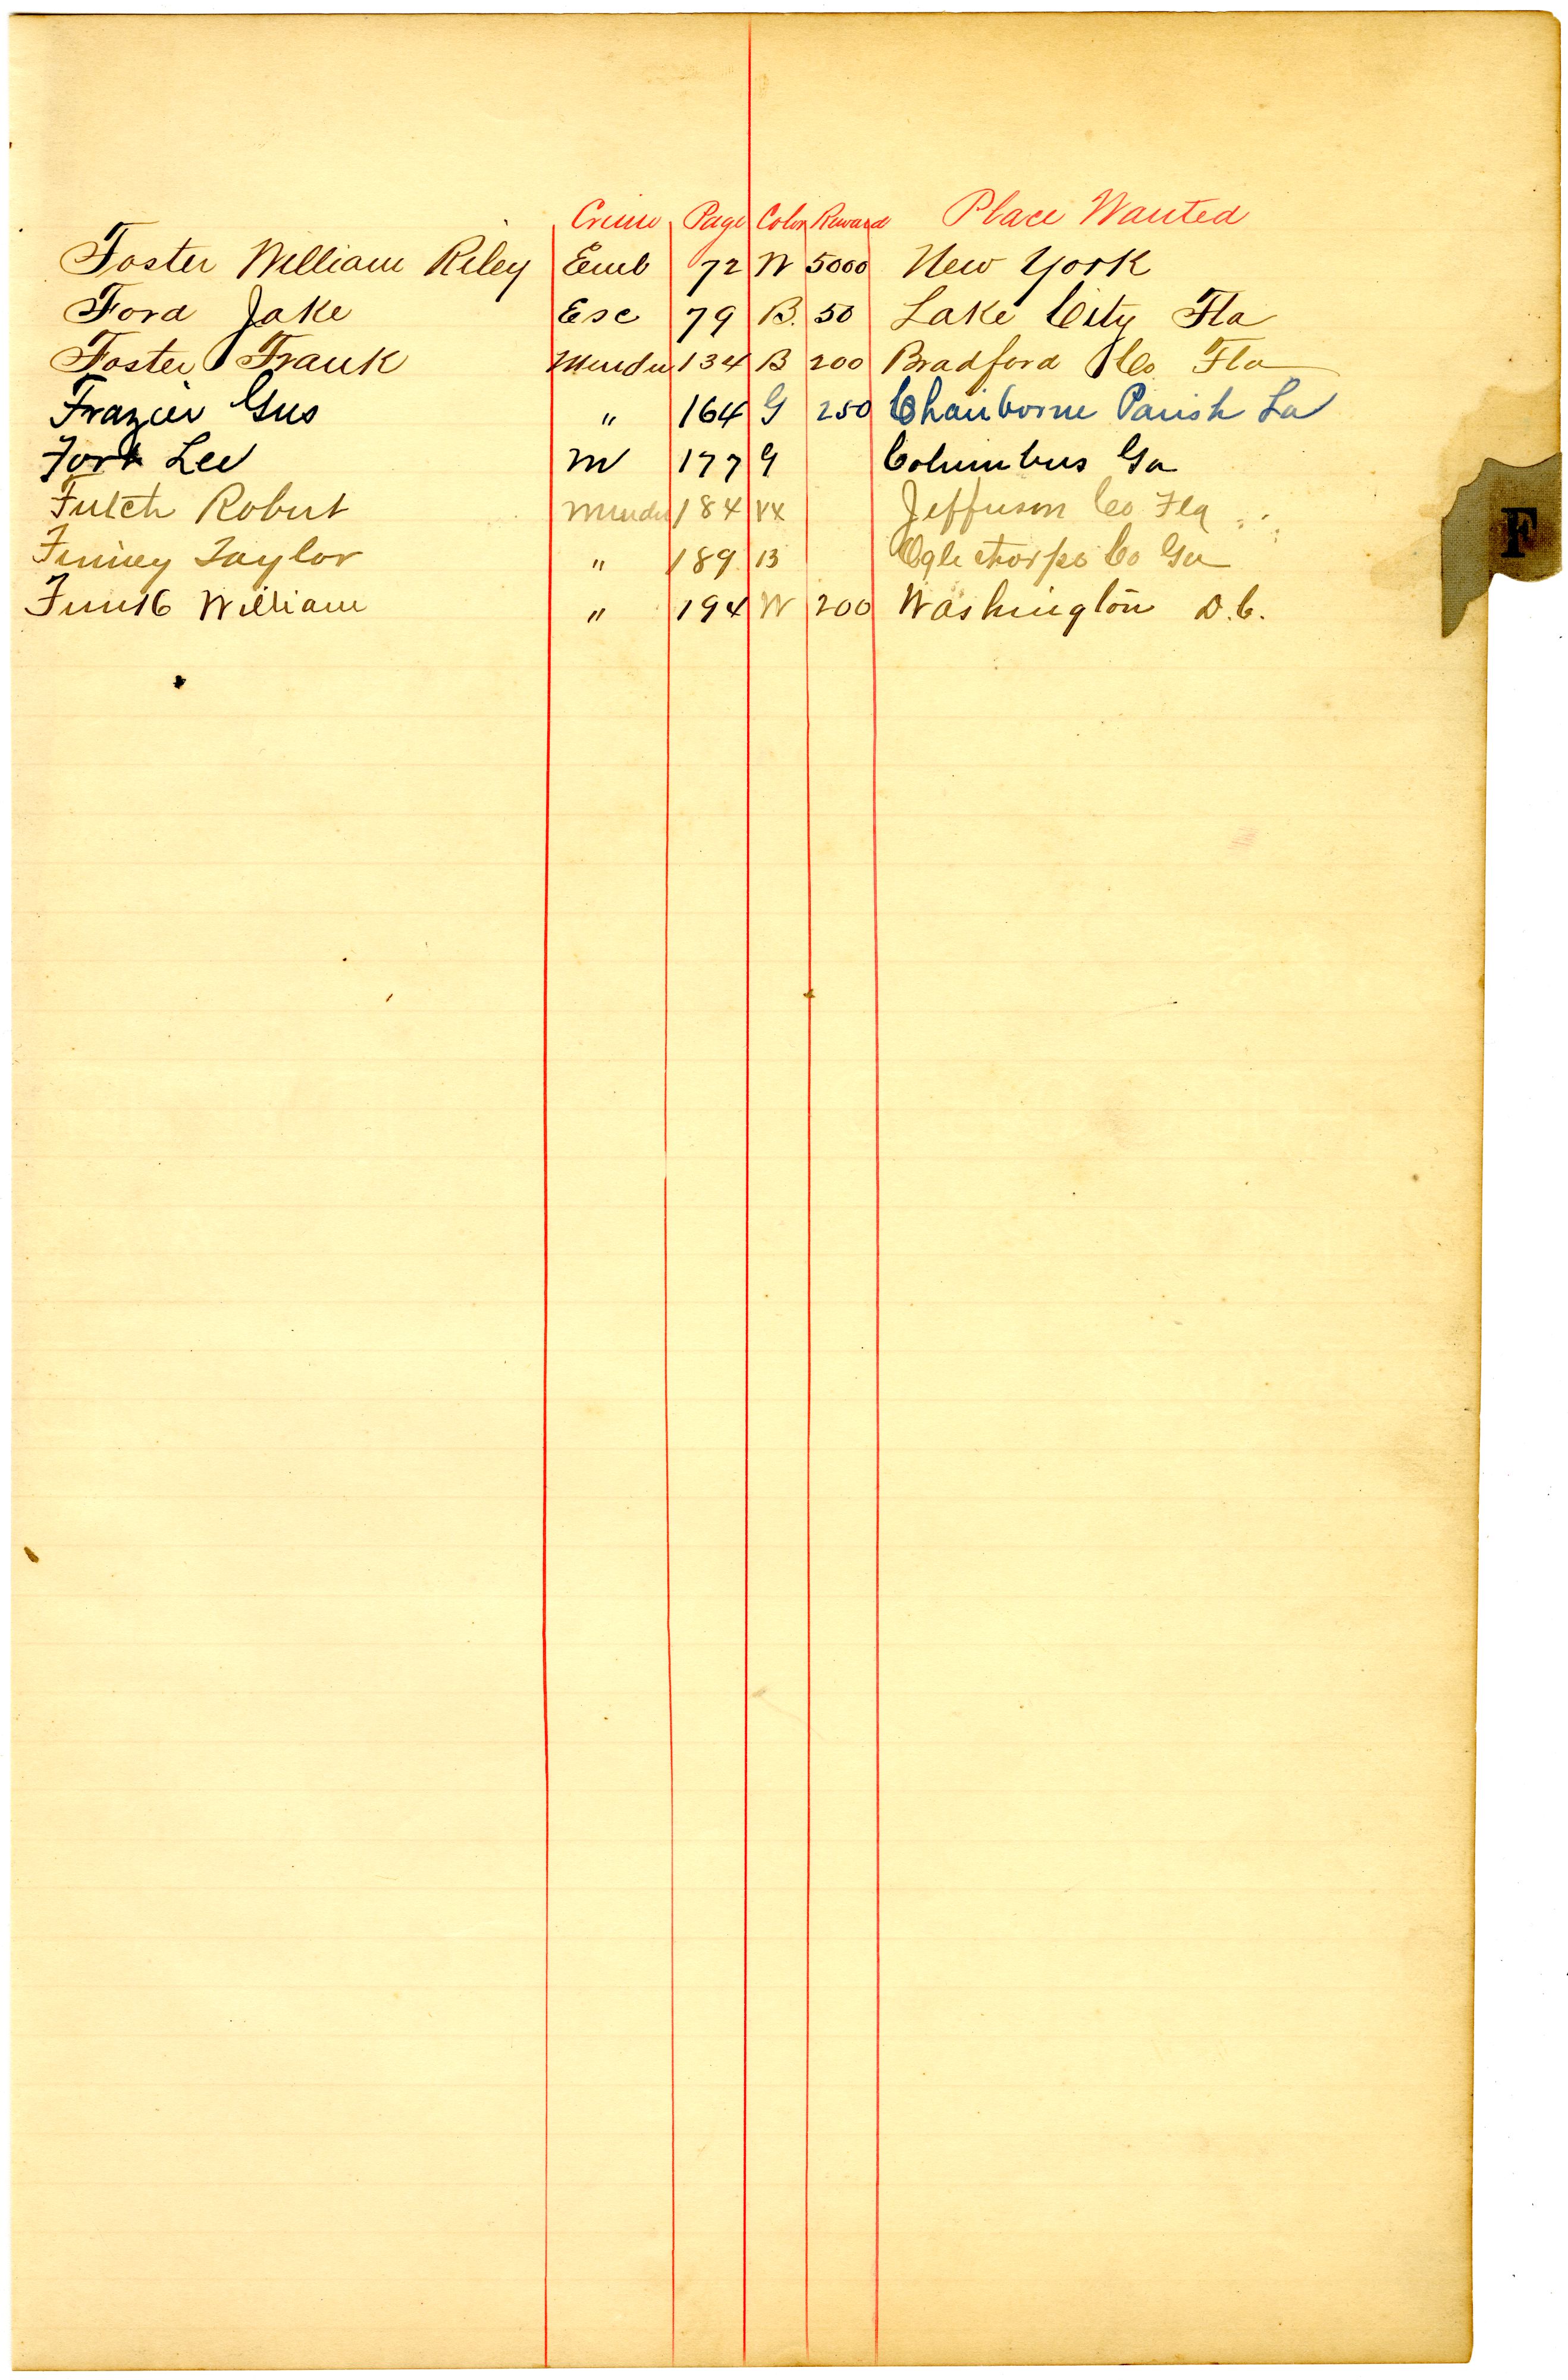 Crime Page Color Reward Place Wanted
Foster William Riley Emb 72 W 5000 New York
Ford Jake Esc 79 B. 50 Lake City Fla
Foster Frank Murder 134 B 200 Bradford Co Fla
Frazier Gus " 164 G 250 Parish La
Fort Lee M 177 G Columbus Ga
Futch Robert Murder 184 Jefferson Co Fla
Finney Taylor " 189 B Oglethorpe Co Ga
William " 194 W 200 Washington D.C.
F